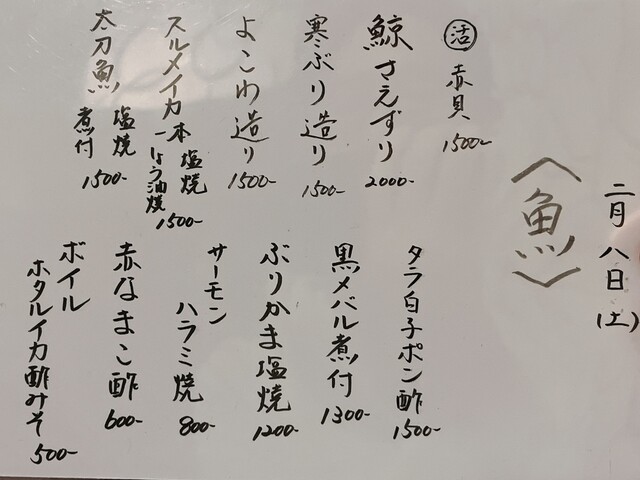 二月八日(土)
〈魚〉
活 赤貝 1500-
鯨さえずり 2000-
寒ぶり造り 1500-
よこわ造り 1500-
スルメイカ一本 塩焼
しょう油焼 1500-
太刀魚 塩焼
煮付 1500-
タラ白子ポン酢 1500-
黒メバル煮付 1300-
ぶりかま塩焼 1200-
サーモン
ハラミ焼 800-
赤なまこ酢 600-
ボイル
ホタルイカ酢みそ 500-